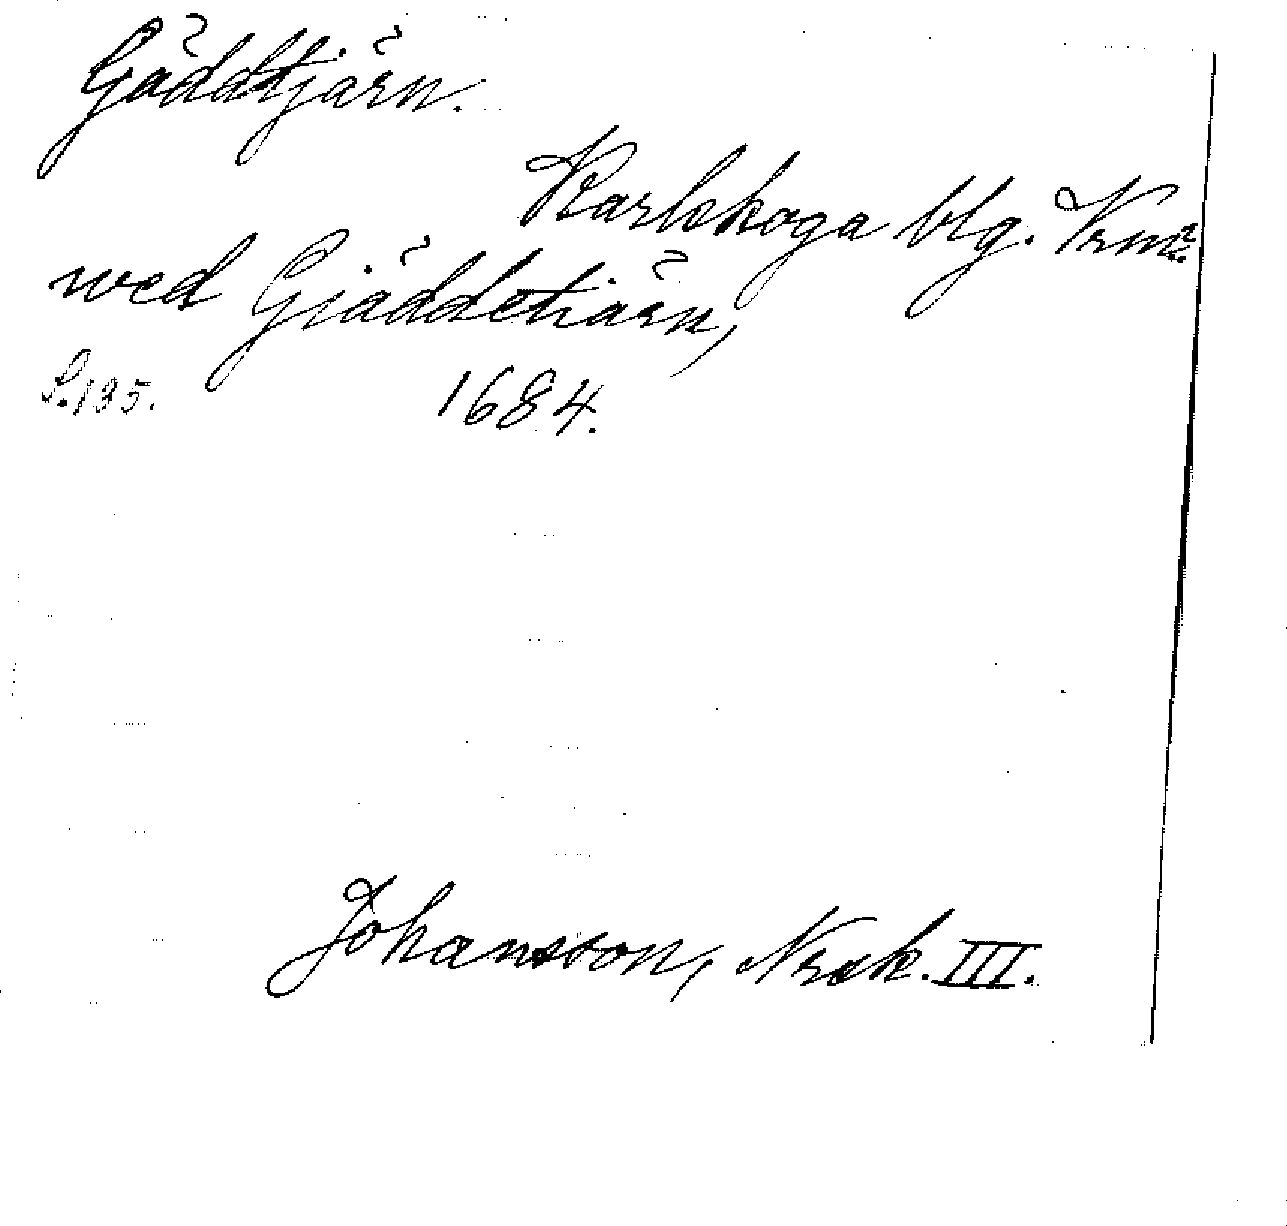 Gäddtjärn.
Karlskoga blg. Vrm.
wed Giäddetiärn,
S. 135. 1684.
Johansson, Nrsk. III.